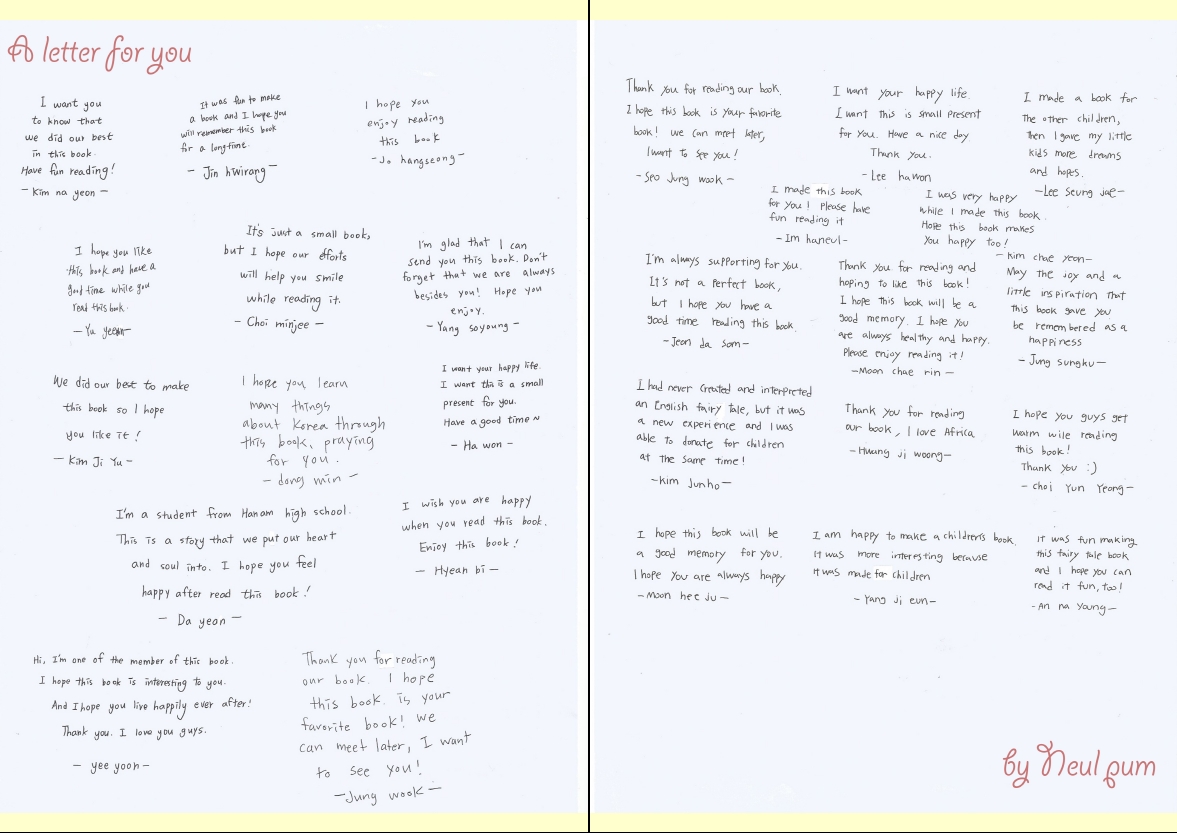 A letter for you
I want you
to know that
we did our best
in this book.
Have fun reading!
- Kim na yeon -
It was fun to make
a book and I hope you
will remember this book
for a longtime.
- Jin hwirang -
I hope you
enjoy reading
this book
- Jo hangseong -
I hope you like
this book and have a
good time while you
read this book.
- Yu yeeun -
It's just a small book,
but I hope our efforts
will help you smile
while reading it.
- Choi minjee -
I'm glad that I can
send you this book. Don't
forget that we are always
besides you! Hope you
enjoy.
- Yang soyoung -
We did our best to make
this book so I hope
you like it!
- Kim Ji Yu -
I hope you learn
many things
about Korea through
this book, praying
for you.
- dong min -
I want your happy life.
I want tha is a small
present for you.
Have a good time ~
- Ha won -
I'm a student from Hanam high school.
This is a story that we put our heart
and soul into. I hope you feel
happy after read this book!
- Da yeon -
I wish you are happy
when you read this book.
Enjoy this book!
- Hyean bi -
Hi, I'm one of the member of this book.
I hope this book is interesting to you.
And I hope you live happily ever after!
Thank you. I love you guys.
- yee yoon -
Thank you for reading
our book. I hope
this book is your
favorite book! we
can meet later, I want
to see you!
- Jung wook -
Thank you for reading our book.
I hope this book is your favorite
book! we can meet later,
I want to see you!
- Seo Jung wook -
I want your happy life.
I want this is small present
for you. Have a nice day.
Thank you.
- Lee hawon
I made a book for
the other children,
then I gave my little
kids more dreams
and hopes.
- Lee seung jae -
I made this book
for you! Please have
fun reading it
- Im haneul -
I was very happy
while I made this book.
Hope this book makes
you happy too!
- Kim chae yeon -
I'm always supporting for you.
It's not a perfect book,
but I hope you have a
good time reading this book.
- Jeon da som -
Thank you for reading and
hoping to like this book!
I hope this book will be a
good memory. I hope you
are always healthy and happy.
Please enjoy reading it!
- Moon chae rin -
May the joy and a
little inspiration that
this book gave you
be remembered as a
happiness
- Jung sungku -
I had never created and interpreted
an English fairy tale, but it was
a new experience and I was
able to donate for children
at the same time!
- Kim Junho -
Thank you for reading
our book, I love Africa.
- Huang ji woong -
I hope you guys get
warm wile reading
this book!
Thank you :)
- choi Yun Yeong -
I hope this book will be
a good memory for you.
I hope you are always happy
- Moon hee ju -
I am happy to make a children's book.
It was more interesting because
it was made for children
- Yang ji eun -
It was fun making
this fairy tale book
and I hope you can
read it fun, too!
- An na young -
by Neul pum